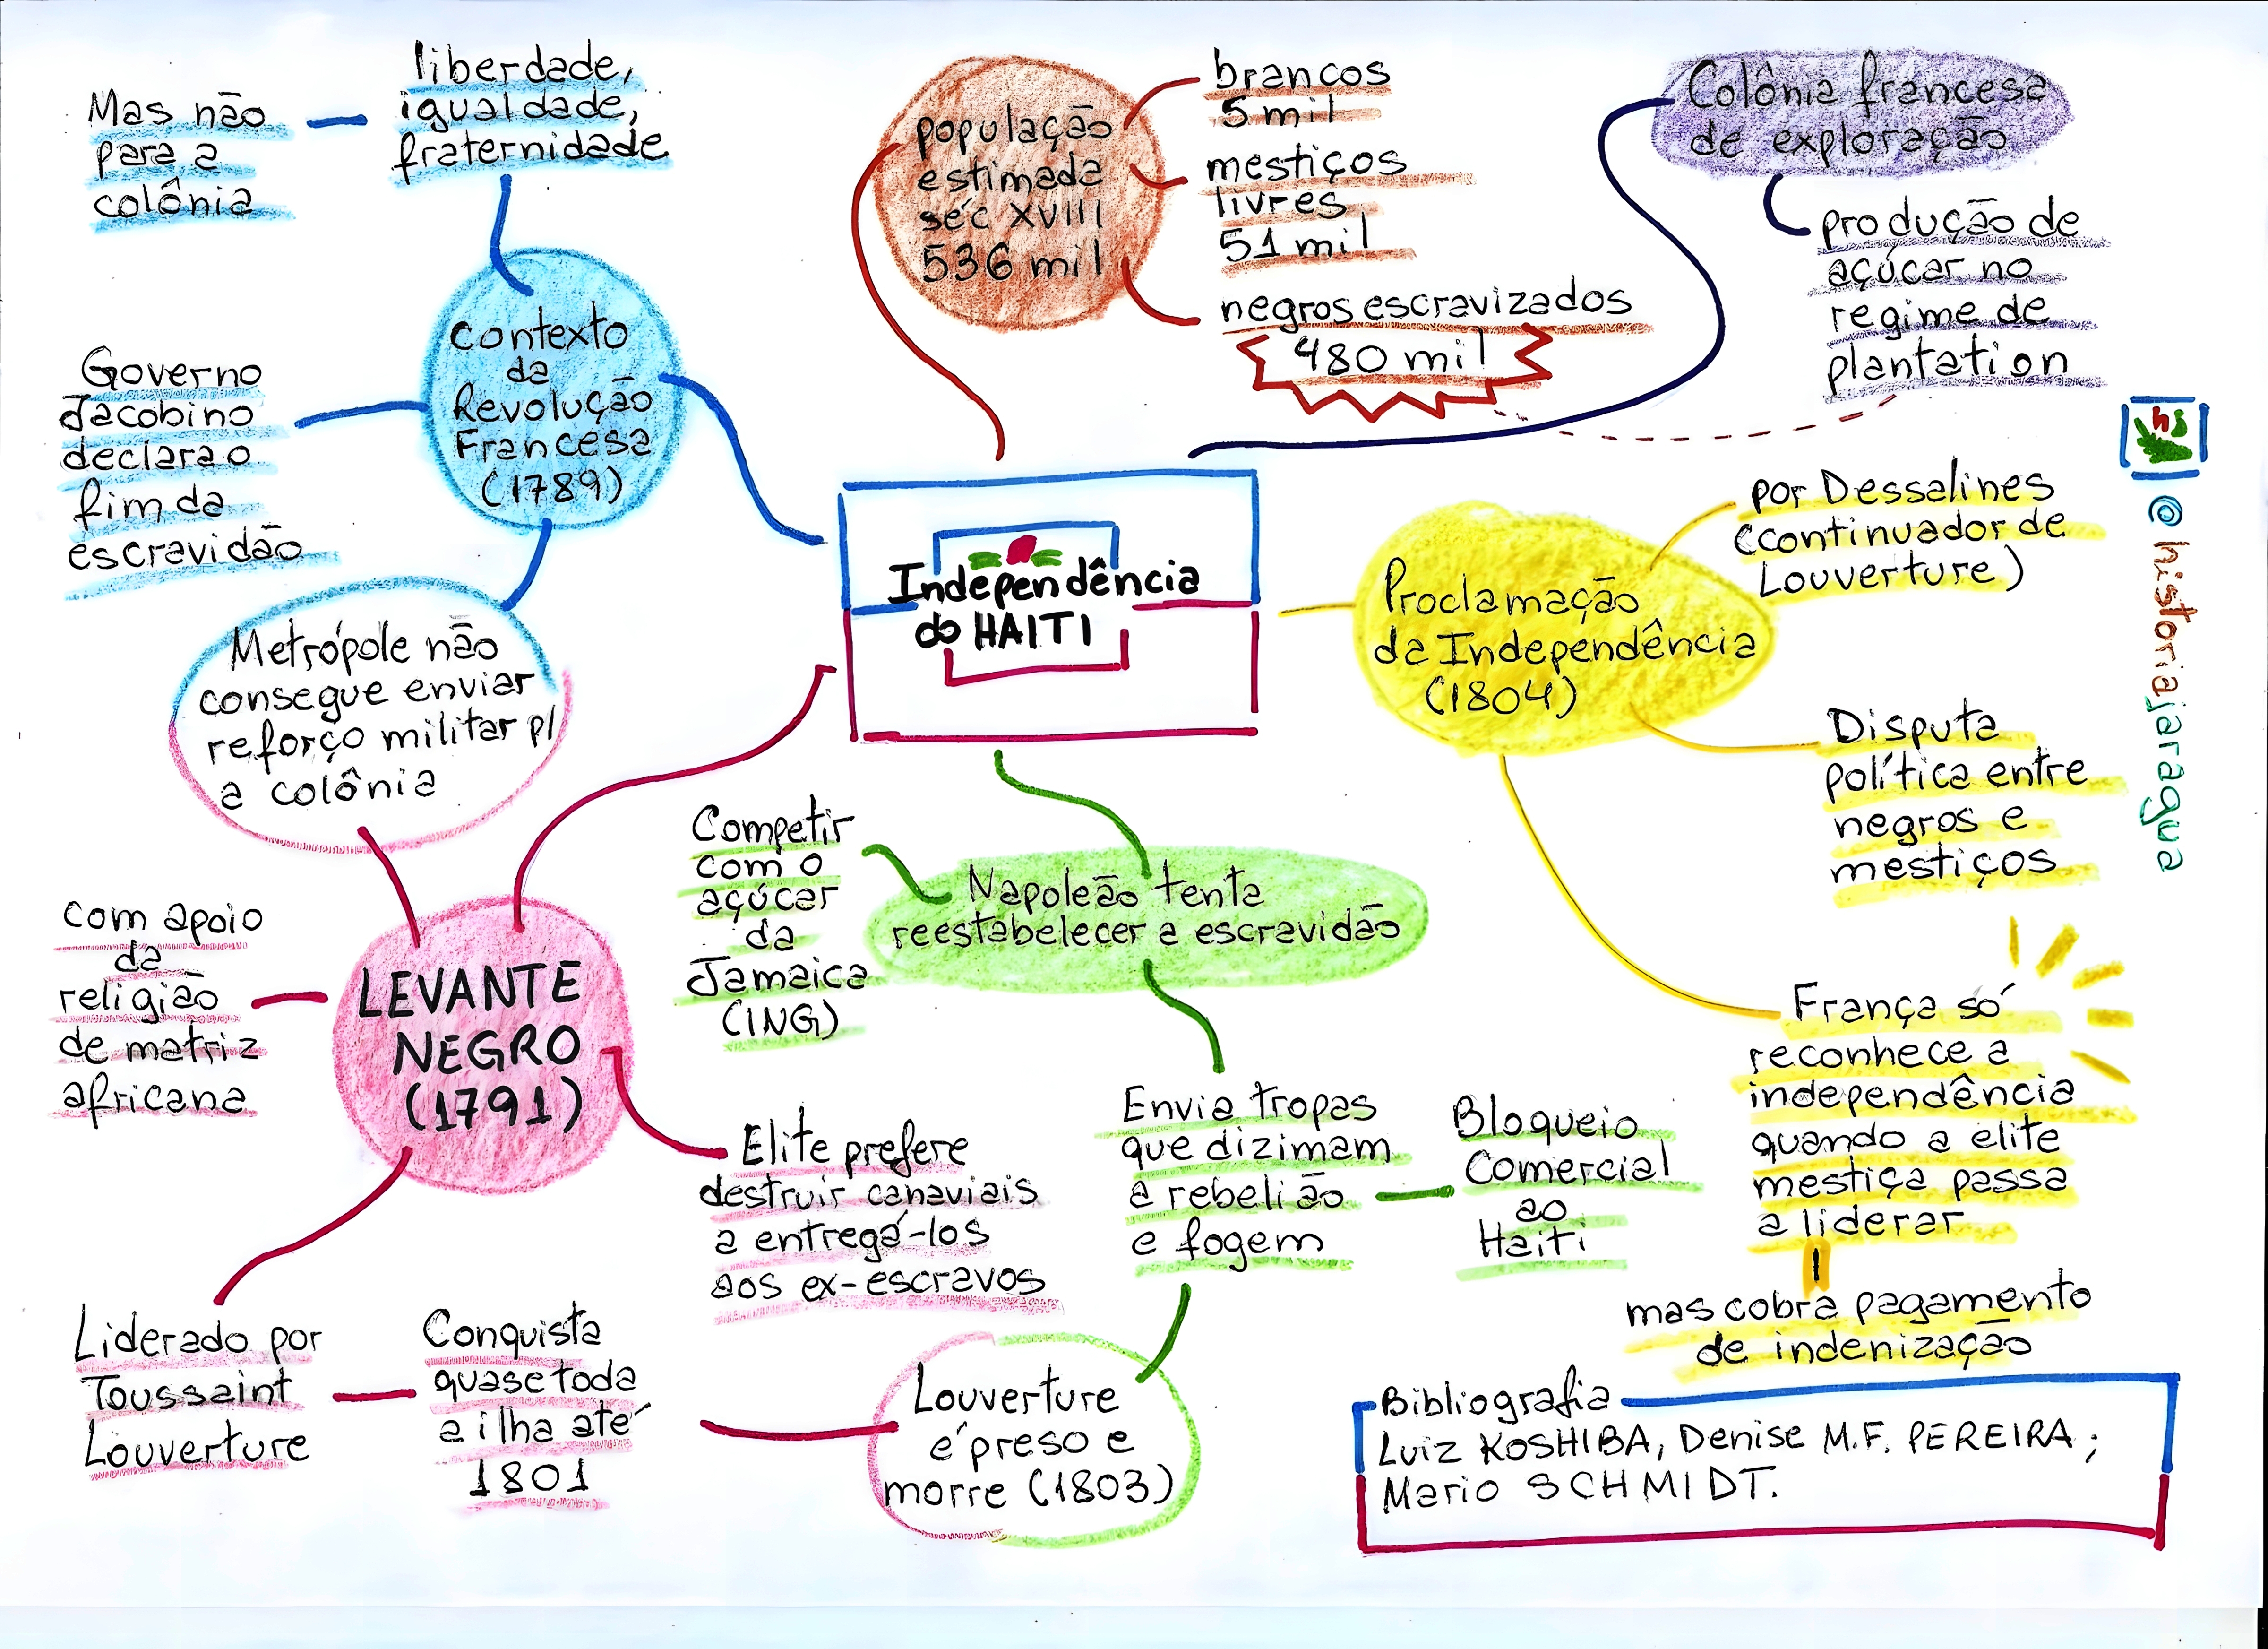 Mas não
para a
colônia
liberdade,
igualdade,
fraternidade
contexto
da
Revolução
Francesa
(1789)
Governo
Jacobino
declara o
fim da
escravidão
Metrópole não
consegue enviar
reforço militar p/
a colônia
população
estimada
séc XVIII
536 mil
brancos
5 mil
mestiços
livres
51 mil
negros escravizados
480 mil
Colônia francesa
de exploração
produção de
açúcar no
regime de
plantation
Independência
do HAITI
Proclamação
da Independência
(1804)
por Dessalines
(continuador de
Louverture)
Disputa
política entre
negros e
mestiços
França só
reconhece a
independência
quando a elite
mestiça passa
a liderar
mas cobra pagamento
de indenização
hs
@historiajaragua
Napoleão tenta
reestabelecer a escravidão
Competir
com o
açúcar
da
Jamaica
(ING)
Envia tropas
que dizimam
a rebelião
e fogem
Bloqueio
Comercial
ao
Haiti
LEVANTE
NEGRO
(1791)
com apoio
da
religião
de matriz
africana
Elite prefere
destruir canaviais
a entregá-los
aos ex-escravos
Liderado por
Toussaint
Louverture
Conquista
quase toda
a ilha até
1801
Louverture
é preso e
morre (1803)
Bibliografia
Luiz KOSHIBA, Denise M.F. PEREIRA;
Mario SCHMIDT.